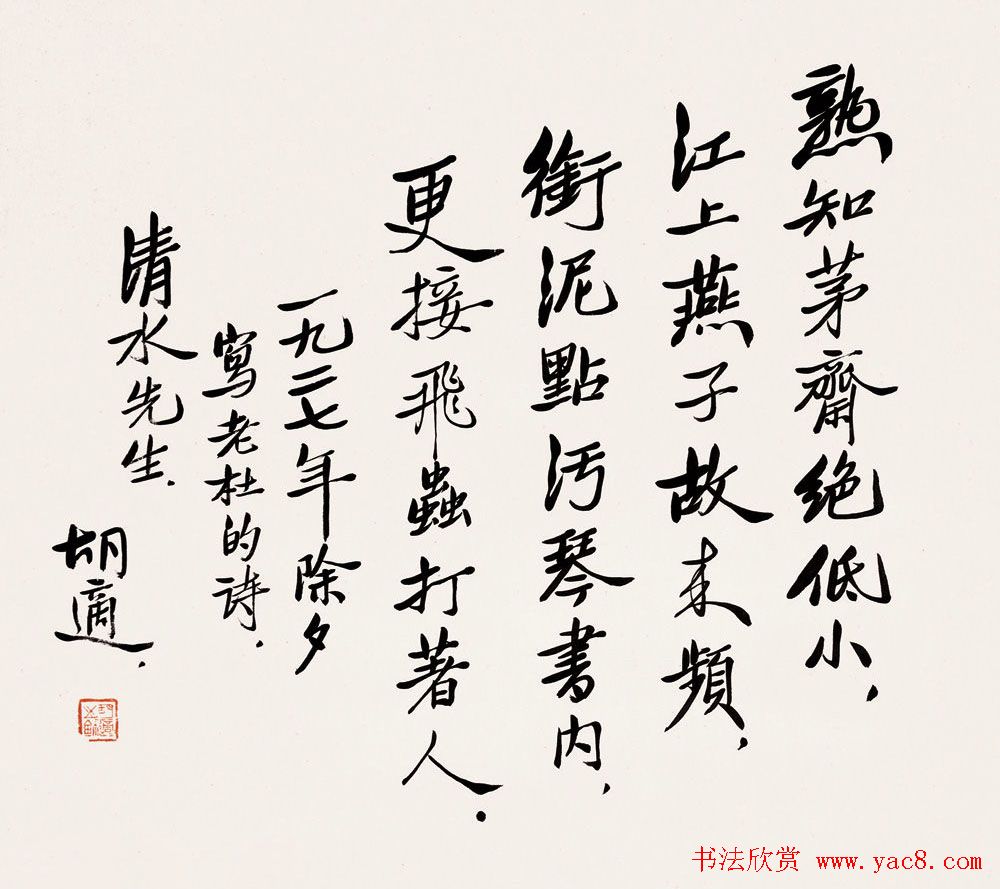 熟知茅齋绝低小，
江上燕子故来頻，
銜泥點污琴書内，
更接飛蟲打著人．
一九二七年除夕
寫老杜的诗．
清水先生．
胡適．
书法欣赏 www.yac8.com